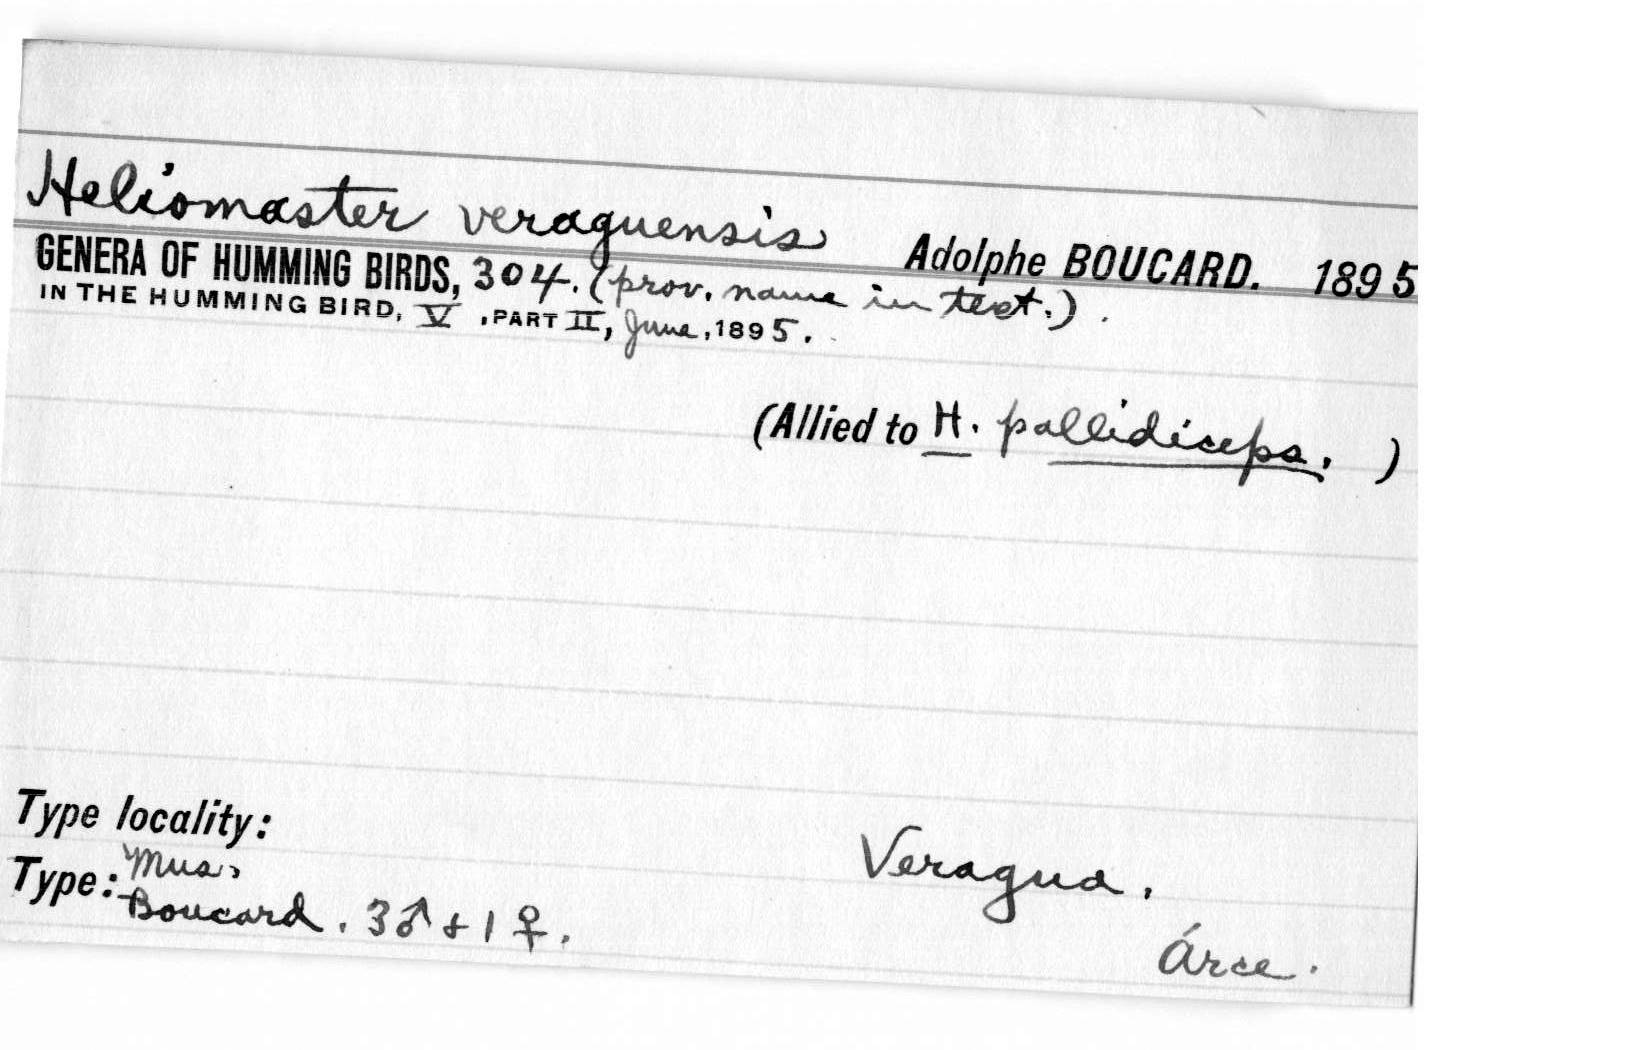 Heliomaster veraguensis Adolphe BOUCARD. 1895
GENERA OF HUMMING BIRDS, 304. (prov. name in text.).
IN THE HUMMING BIRD, V, PART II, June, 1895.
(Allied to H. pallidiceps. )
Type locality:
Veragua.
Type: Mus.
Boucard. 3♂ + 1♀.
Árce.